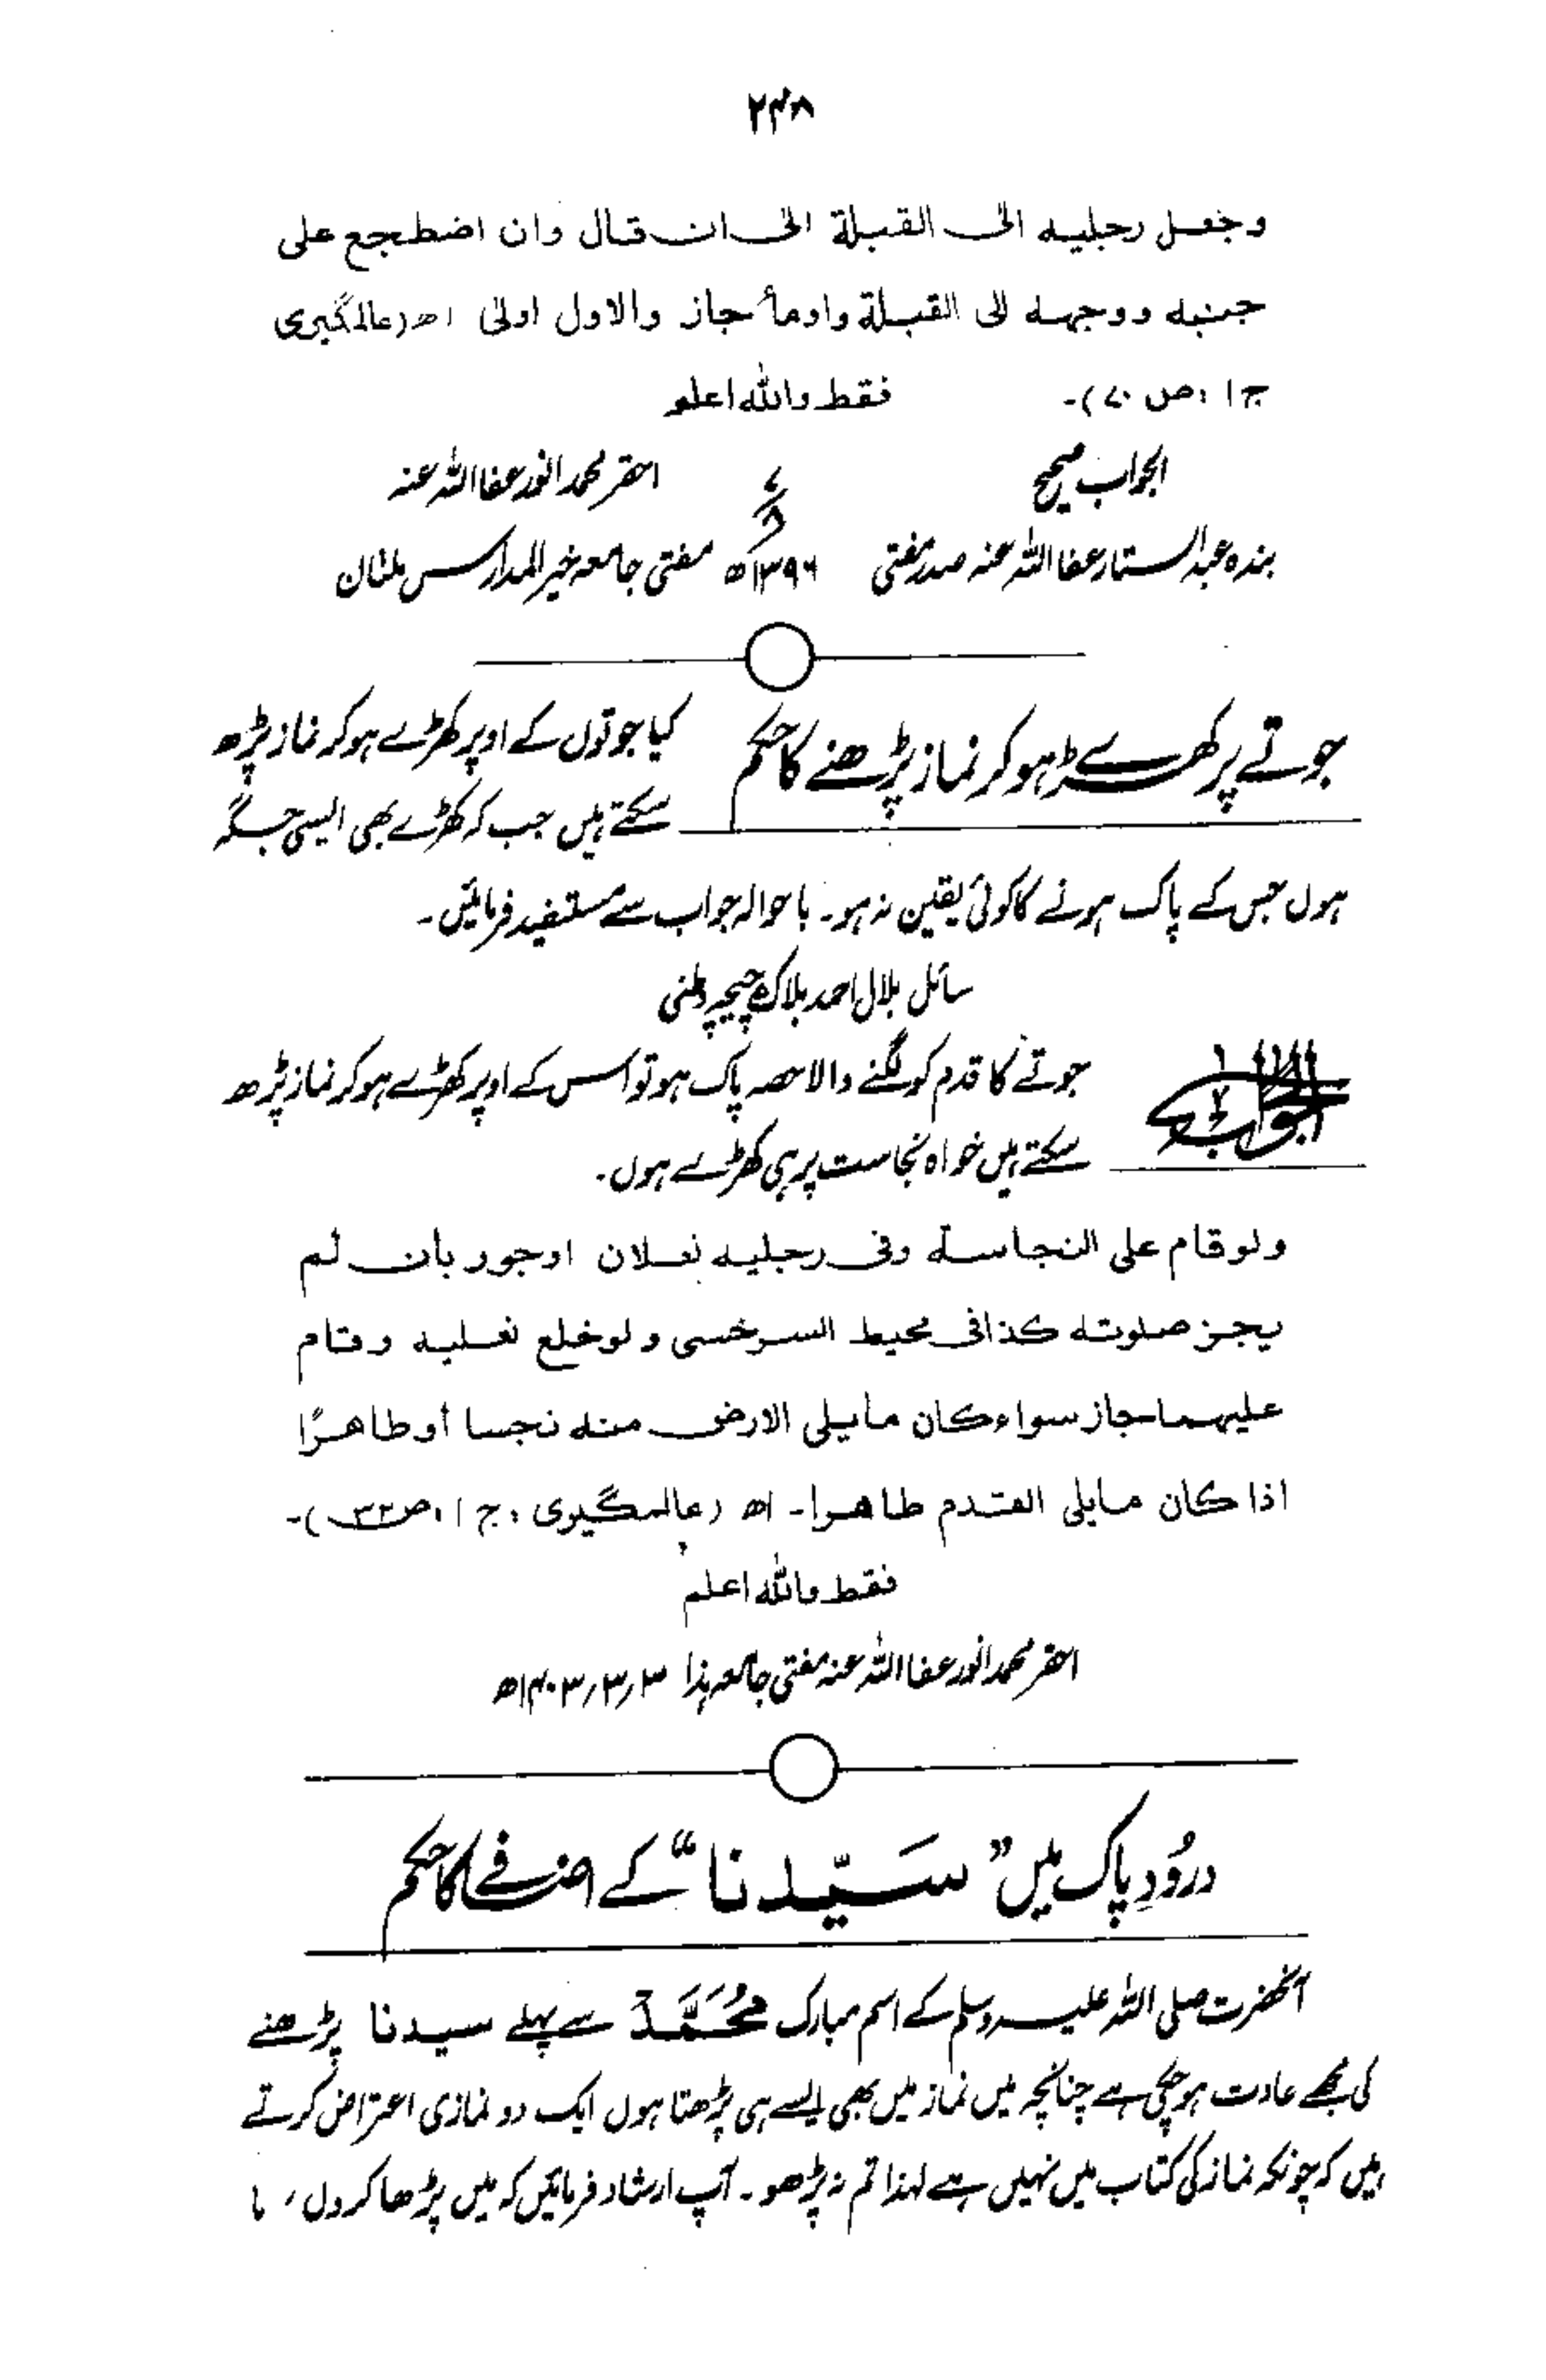 ۲۴۸
وجعل رجلیه الی القبلة الی ان قال وان اضطجع علی
جنبه ووجهه الی القبلة واومأ جاز والاول اولی اھ (عالمگیری
ج ۱ ، ص ۷۰)۔ فقط واللہ اعلم
الجواب صحیح احقر محمد انور عفا اللہ عنہ
بندہ عبدالستار عفا اللہ عنہ صدر مفتی ۱۳۹۶ھ مفتی جامعہ خیر المدارس ملتان
جوتے پر کھڑے ہو کر نماز پڑھنے کا حکم کیا جوتوں کے اوپر کھڑے ہو کر نماز پڑھ
سکتے ہیں جب کہ کھڑے بھی ایسی جگہ
ہوں جس کے پاک ہونے کا کوئی یقین نہ ہو۔ باحوالہ جواب سے مستفید فرمائیں۔
سائل بلال احمد بلاک چیچہ وطنی
الجواب جوتے کا قدم کو لگنے والا حصہ پاک ہو تو اس کے اوپر کھڑے ہو کر نماز پڑھ
سکتے ہیں خواہ نجاست پر ہی کھڑے ہوں۔
ولو قام علی النجاسة وفی رجلیه نعلان او جوربان لم
یجز صلوته کذا فی محیط السرخسی ولو خلع نعلیه وقام
علیهما جاز سواء کان ما یلی الارض منه نجسا أو طاهرًا
اذا کان ما یلی القدم طاهرا۔ اھ (عالمگیری ، ج ۱ ، ص ۳۲)۔
فقط واللہ اعلم
احقر محمد انور عفا اللہ عنہ مفتی جامعہ ہذا ۳ ر ۳ ر ۱۴۰۳ھ
درُودِ پاک میں ”سَیّدنا“ کے اضافے کا حکم
آنحضرت صلی اللہ علیہ وسلم کے اسم مبارک مُحَمَّد سے پہلے سیدنا پڑھنے
کی مجھے عادت ہو چکی ہے چنانچہ میں نماز میں بھی ایسے ہی پڑھتا ہوں ایک دو نمازی اعتراض کرتے
ہیں کہ چونکہ نماز کی کتاب میں نہیں ہے لہذا تم نہ پڑھو۔ آپ ارشاد فرمائیں کہ میں پڑھا کروں ، یا